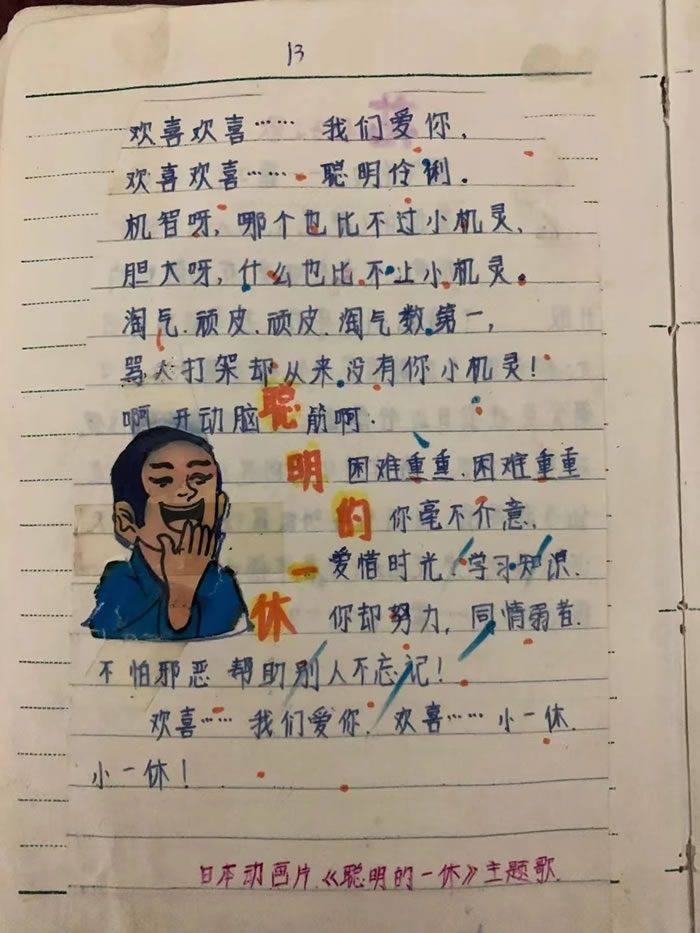 13
欢喜欢喜…… 我们爱你,
欢喜欢喜…… 聪明伶俐.
机智呀,哪个也比不过小机灵,
胆大呀,什么也比不上小机灵.
淘气.顽皮.顽皮.淘气数第一,
骂人打架却从来没有你小机灵!
啊 开动脑筋啊.
聪明的一休
困难重重.困难重重
你毫不介意.
爱惜时光!学习知识.
你却努力,同情弱者.
不怕邪恶 帮助别人不忘记!
欢喜…… 我们爱你. 欢喜…… 小一休.
小一休!
日本动画片《聪明的一休》主题歌.